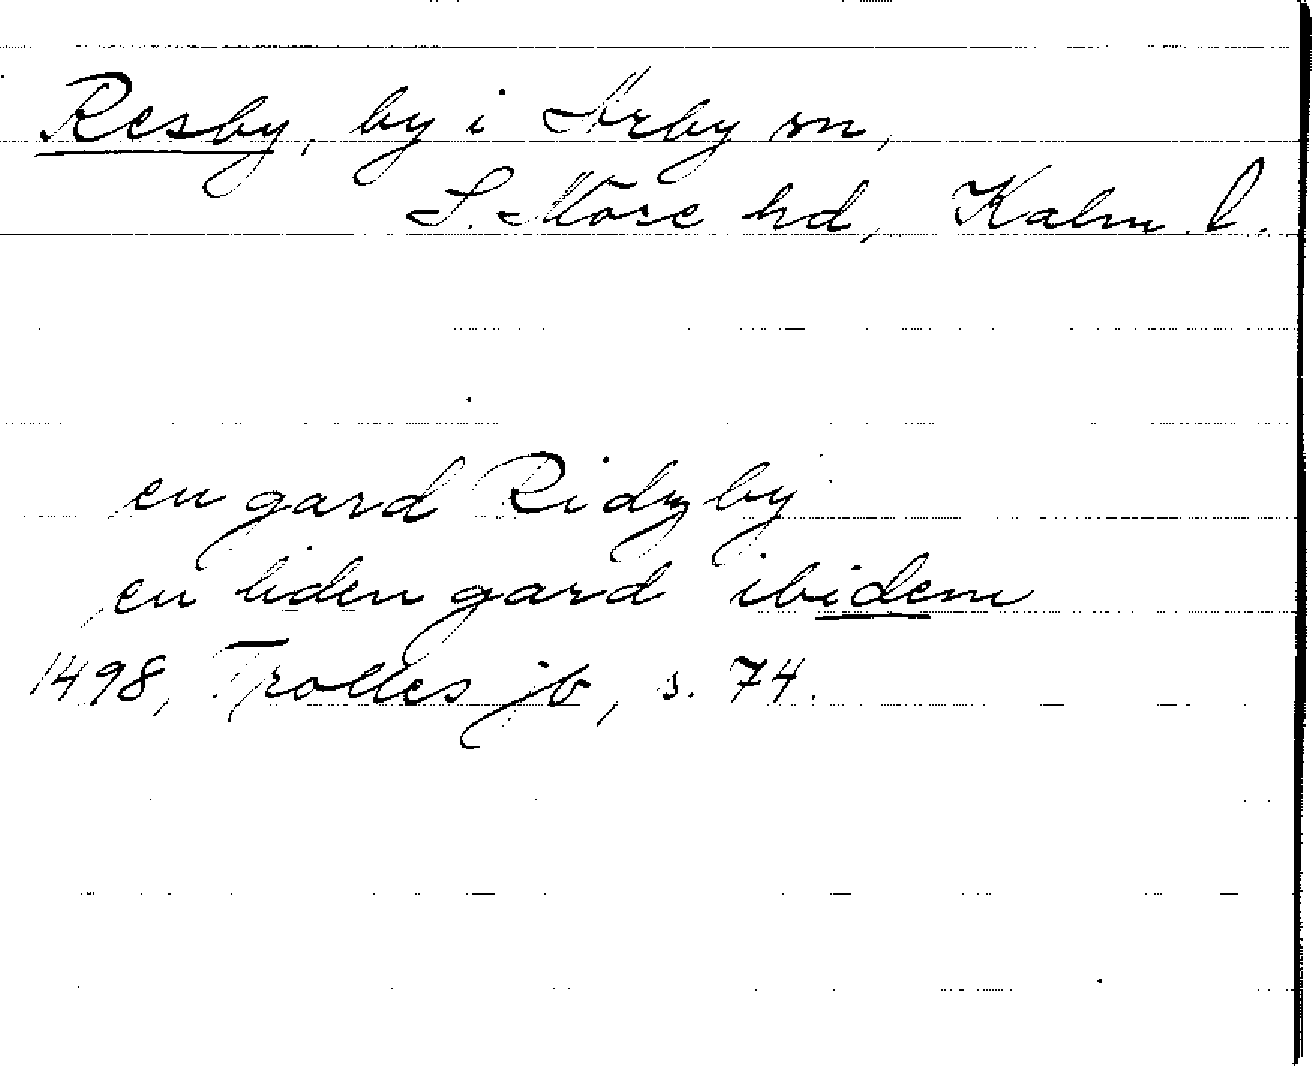 Resby, by i Arby sn,
S. Möre hd, Kalm. l.
en gard Ridzby
en liden gard ibidem
1498, Trolles jb, s. 74.